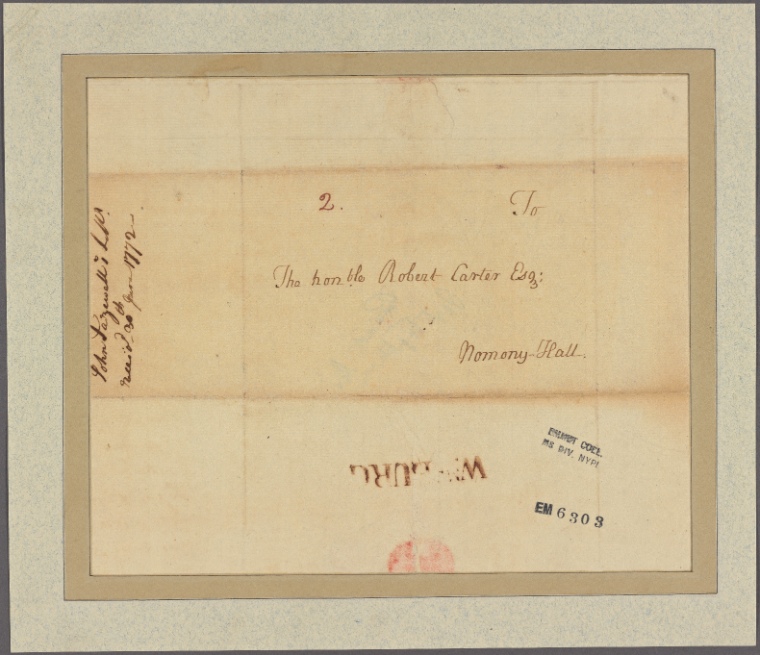 2.
To
The hon:ble Robert Carter Esq:
Nomony-Hall.
John Tazewell's
receiv'd 20th June 1772
EMMET COLL.
MS DIV. NYPL
EM 6303
BURG